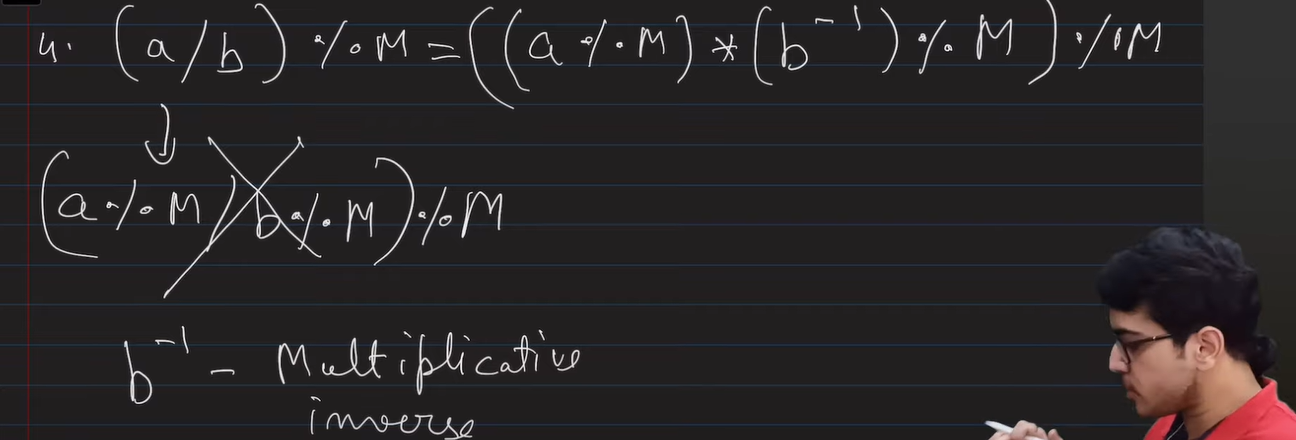 4. (a/b) % M = ((a % M) * (b⁻¹) % M) % M
(a % M / b % M) % M
b⁻¹ - Multiplicative
inverse